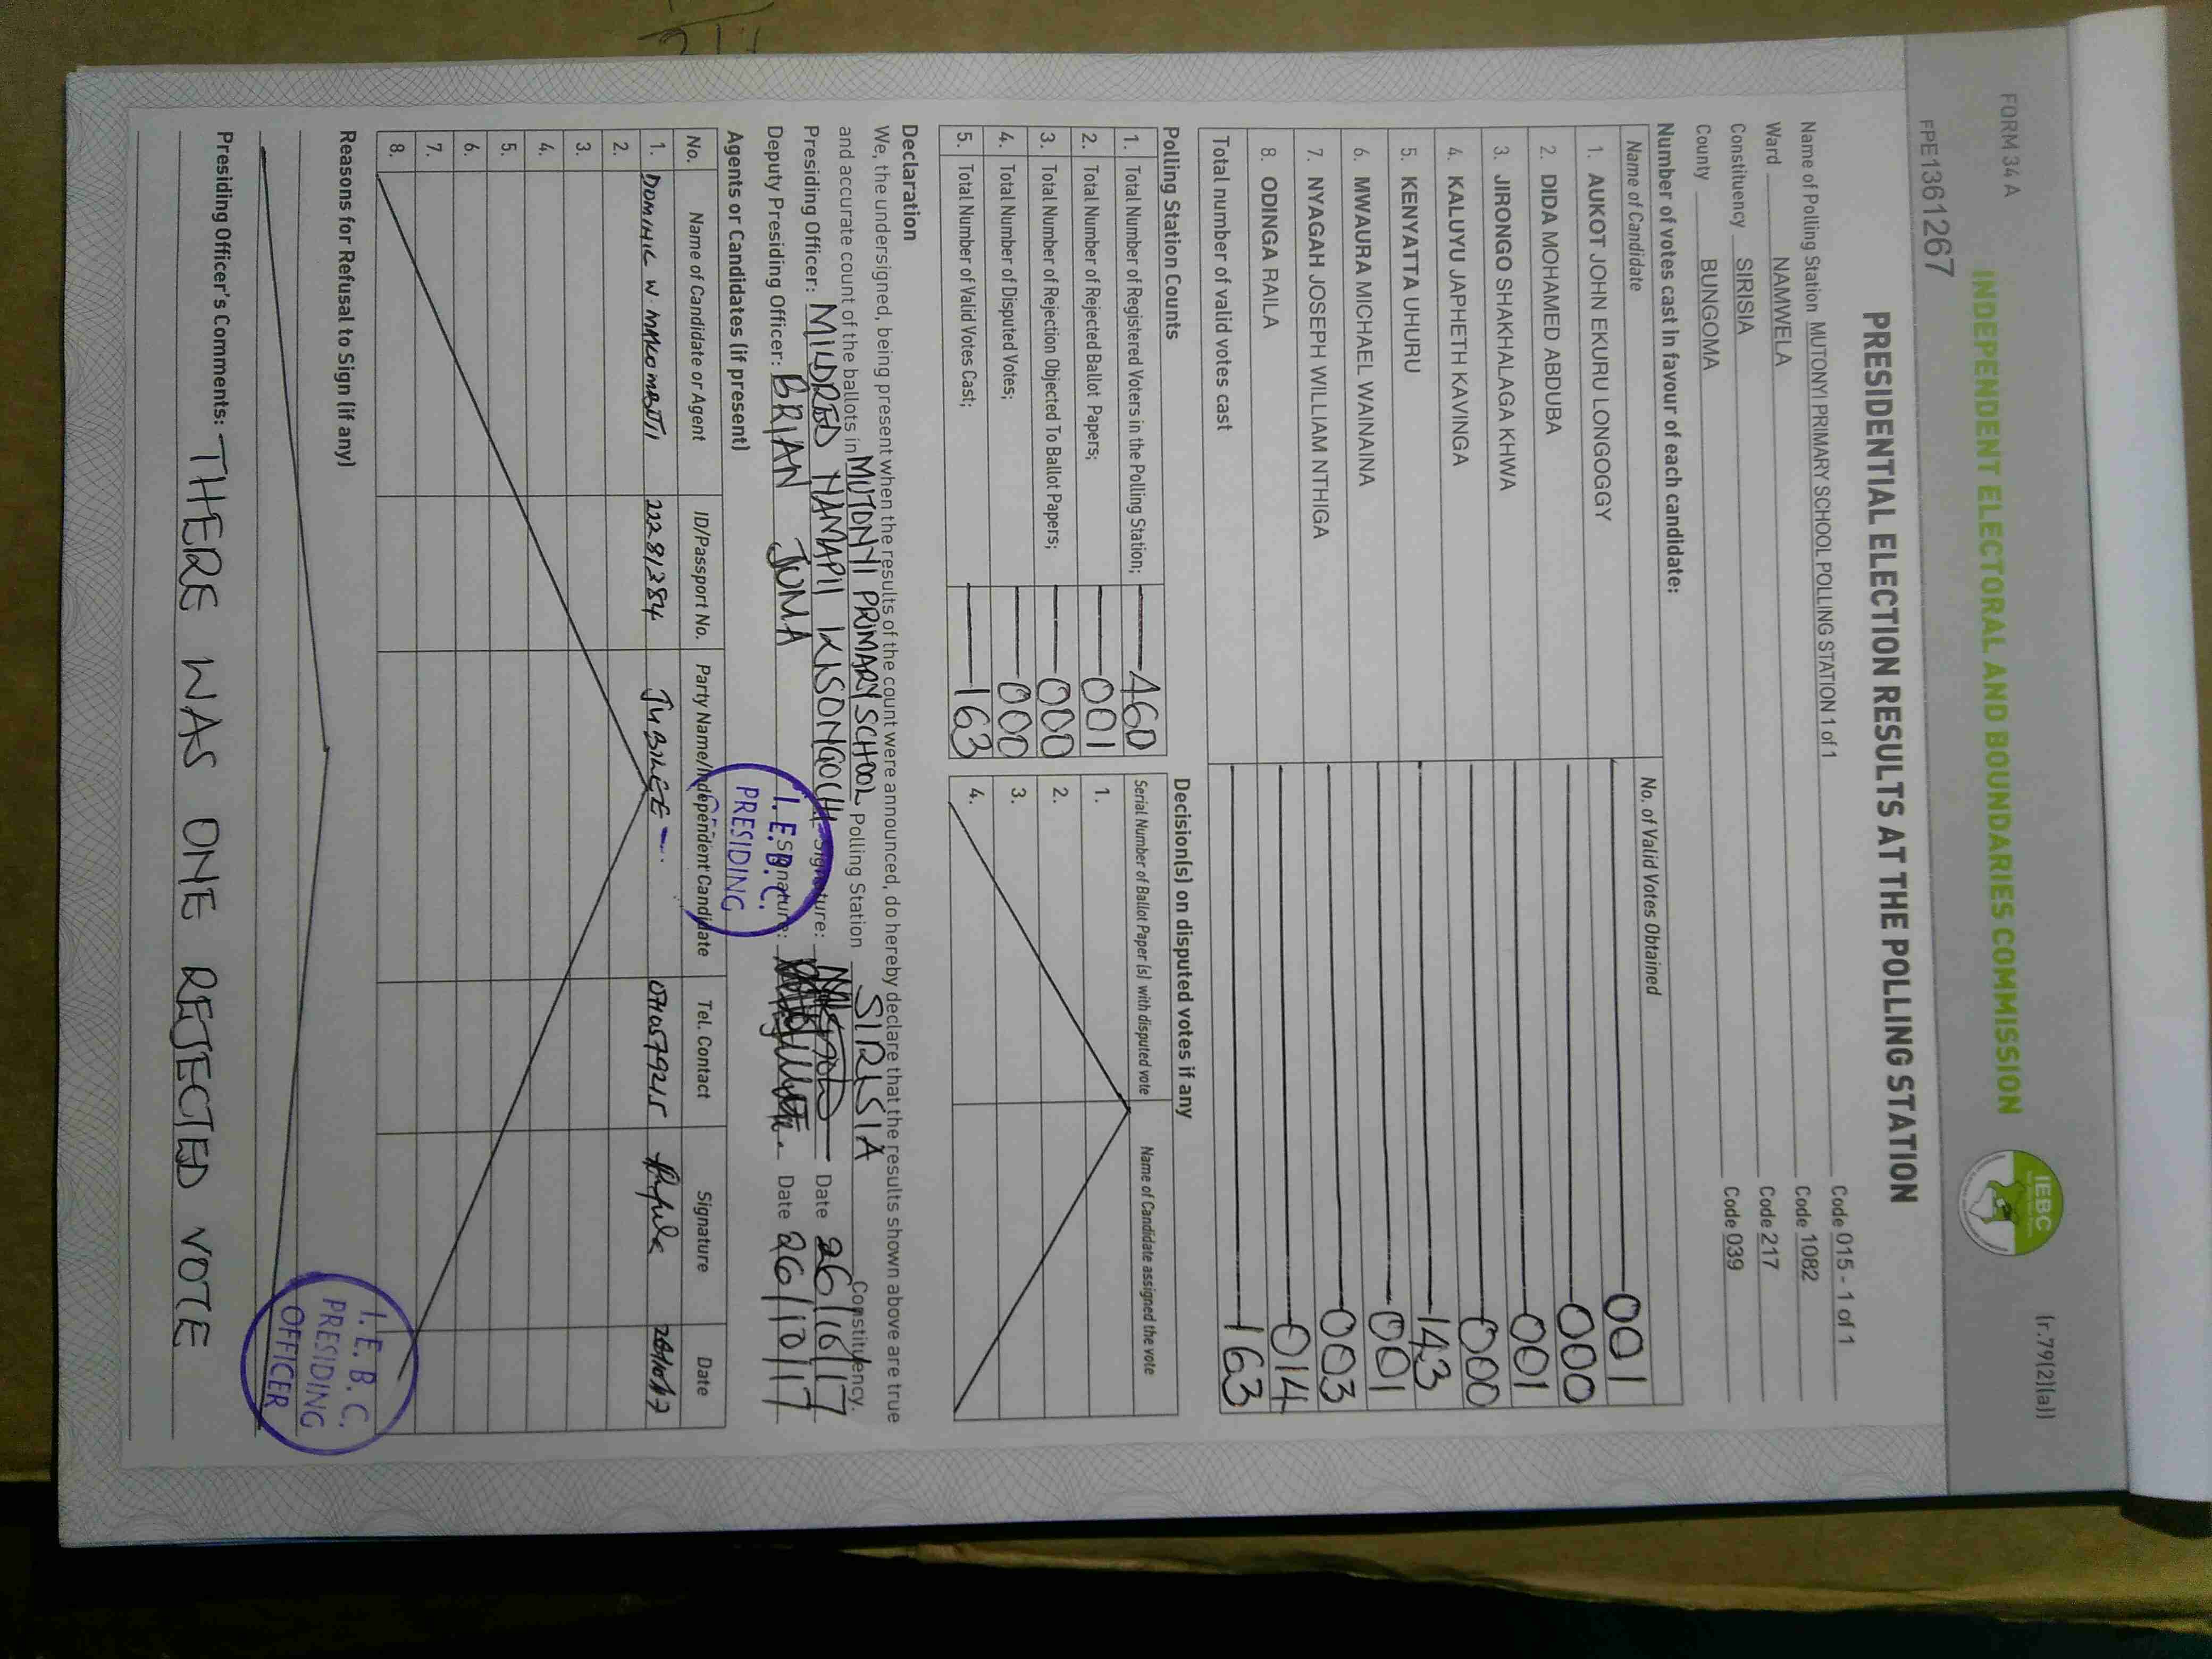 FORM 34 A
(r.79(2)(a))
INDEPENDENT ELECTORAL AND BOUNDARIES COMMISSION
IEBC
FPE1361267
PRESIDENTIAL ELECTION RESULTS AT THE POLLING STATION
Name of Polling Station MUTONYI PRIMARY SCHOOL POLLING STATION 1 of 1 Code 015 - 1 of 1
Ward NAMWELA Code 1082
Constituency SIRISIA Code 217
County BUNGOMA Code 039
Number of votes cast in favour of each candidate:
Name of Candidate No. of Valid Votes Obtained
1. AUKOT JOHN EKURU LONGOGGY 001
2. DIDA MOHAMED ABDUBA 000
3. JIRONGO SHAKHALAGA KHWA 001
4. KALUYU JAPHETH KAVINGA 000
5. KENYATTA UHURU 143
6. MWAURA MICHAEL WAINAINA 001
7. NYAGAH JOSEPH WILLIAM NTHIGA 003
8. ODINGA RAILA 014
Total number of valid votes cast 163
Polling Station Counts
1. Total Number of Registered Voters in the Polling Station; 460
2. Total Number of Rejected Ballot Papers; 001
3. Total Number of Rejection Objected To Ballot Papers; 000
4. Total Number of Disputed Votes; 000
5. Total Number of Valid Votes Cast; 163
Decision(s) on disputed votes if any
Serial Number of Ballot Paper (s) with disputed vote Name of Candidate assigned the vote
1.
2.
3.
4.
Declaration
We, the undersigned, being present when the results of the count were announced, do hereby declare that the results shown above are true
and accurate count of the ballots in MUTONYI PRIMARY SCHOOL Polling Station SIRISIA Constituency.
Presiding Officer: MILDRED NAMAPII Signature: Date 26/10/17
Deputy Presiding Officer: BRIAN JUMA Signature: Date 26/10/17
I.E.B.C.
PRESIDING
Agents or Candidates (if present)
No. Name of Candidate or Agent ID/Passport No. Party Name/Independent Candidate Tel. Contact Signature Date
1. DOMINIC W. 22281384 JUBILEE 0710579215 26/10/17
2.
3.
4.
5.
6.
7.
8.
Reasons for Refusal to Sign (if any)
I.E.B.C.
PRESIDING
OFFICER
Presiding Officer's Comments: THERE WAS ONE REJECTED VOTE